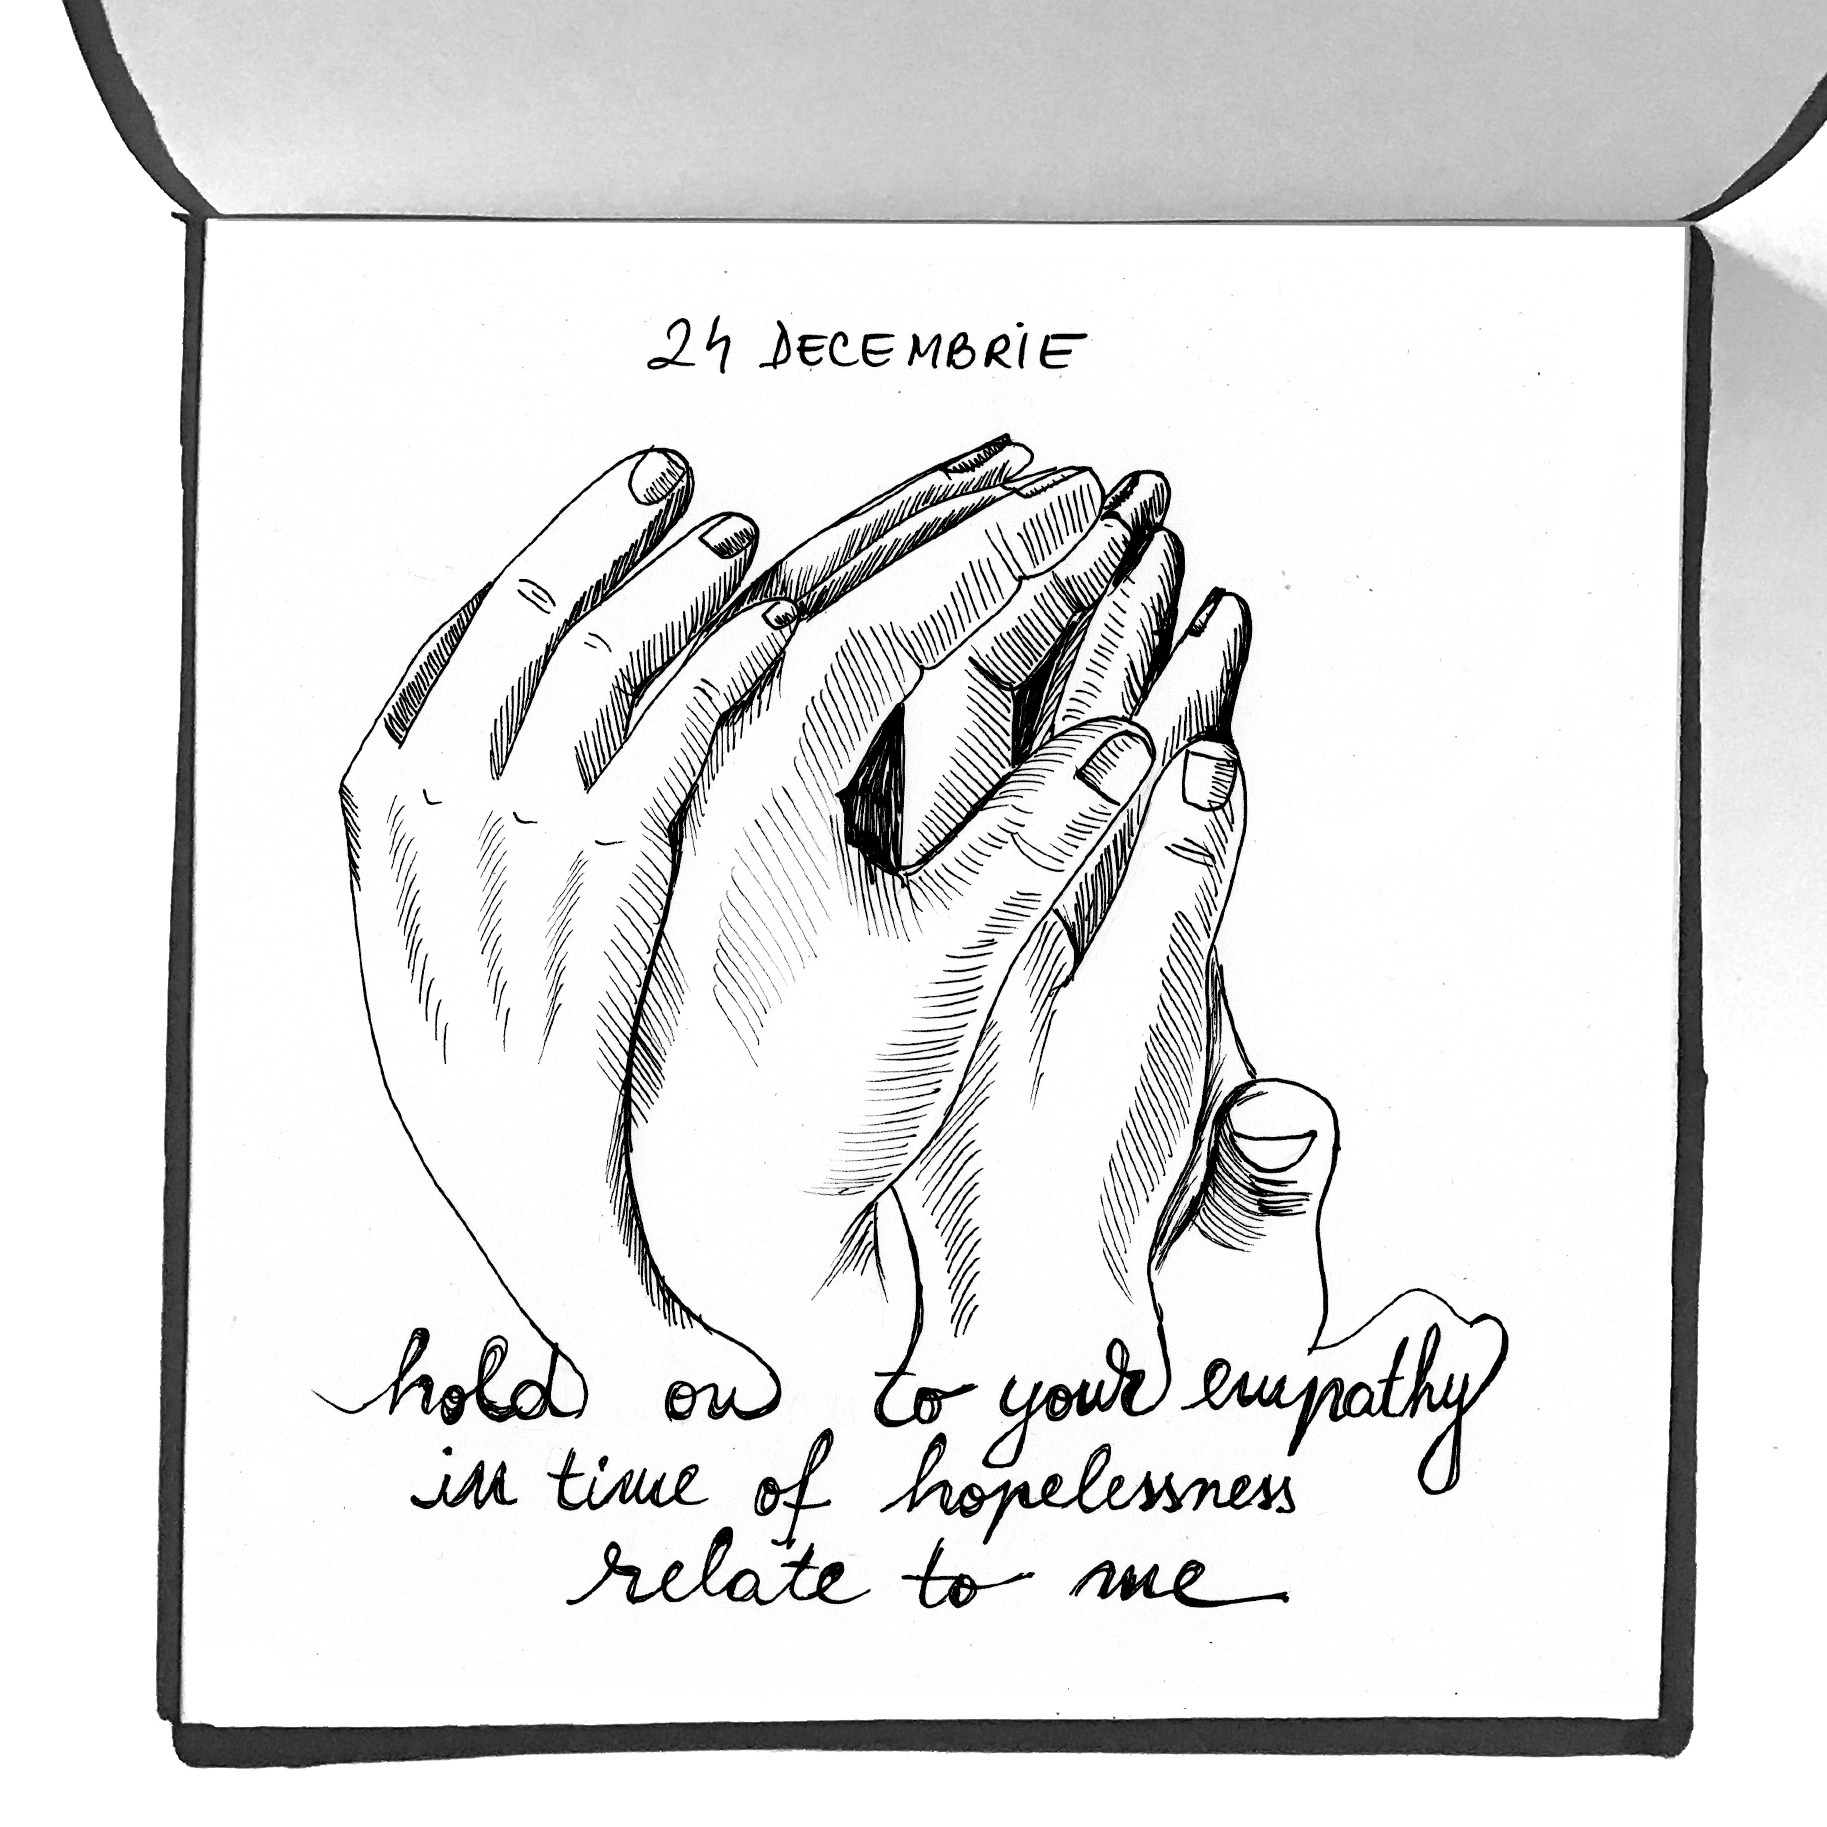 24 DECEMBRIE
hold on to your empathy
in time of hopelessness
relate to me